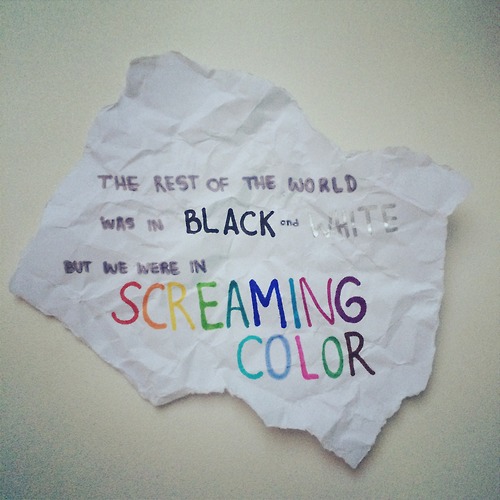 THE REST OF THE WORLD
WAS IN BLACK and WHITE
BUT WE WERE IN
SCREAMING
COLOR